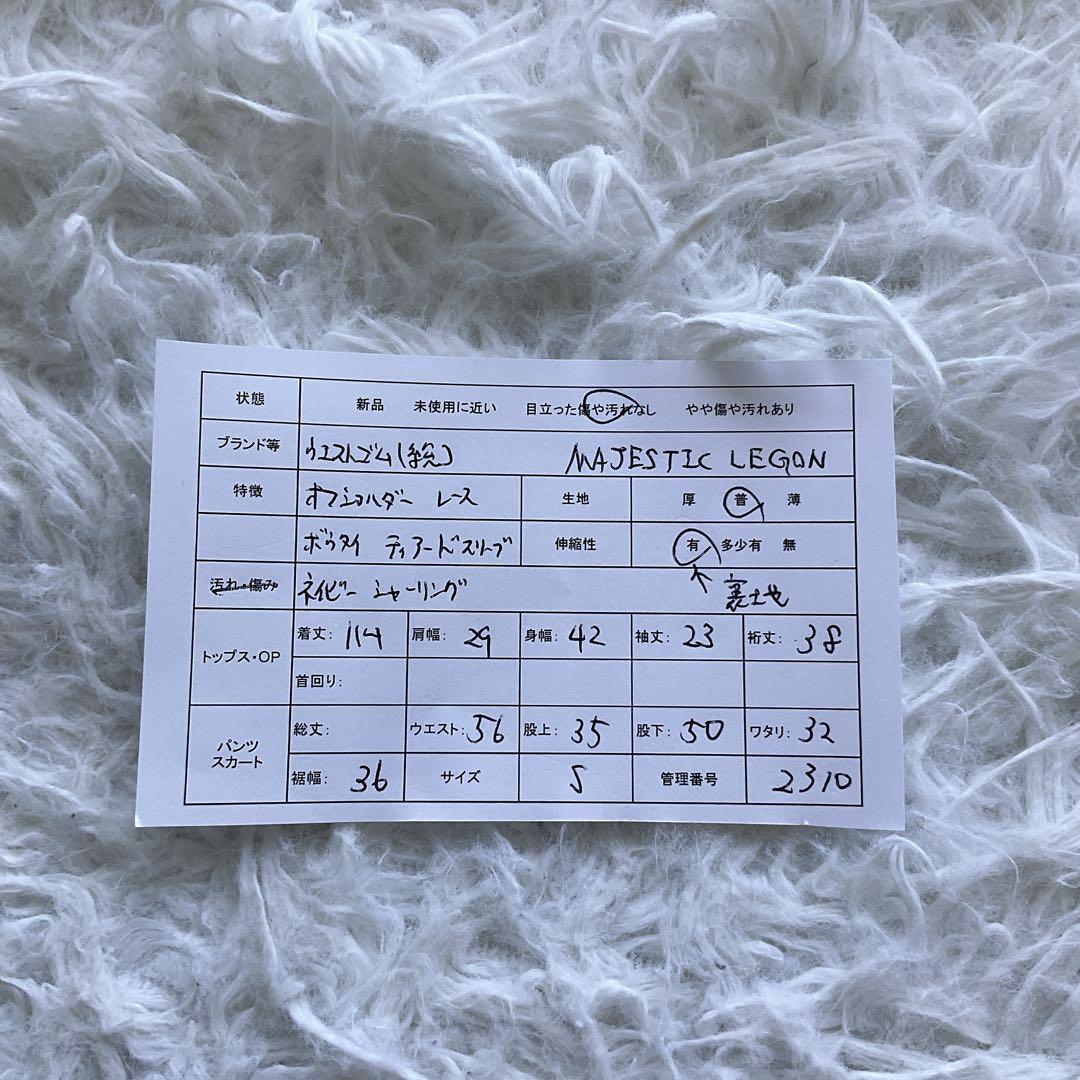 状態 新品 未使用に近い 目立った傷や汚れなし やや傷や汚れあり
ブランド等 ウエストゴム(総) MAJESTIC LEGON
特徴 オフショルダー レース 生地 厚 普 薄
ボウタイ ティアードスリーブ 伸縮性 有 多少有 無
汚れ・傷み ネイビー シャーリング 裏地も
トップス・OP 着丈: 114 肩幅: 29 身幅: 42 袖丈: 23 裄丈: 38
首回り:
パンツ スカート 総丈: ウエスト: 56 股上: 35 股下: 50 ワタリ: 32
裾幅: 36 サイズ S 管理番号 2310